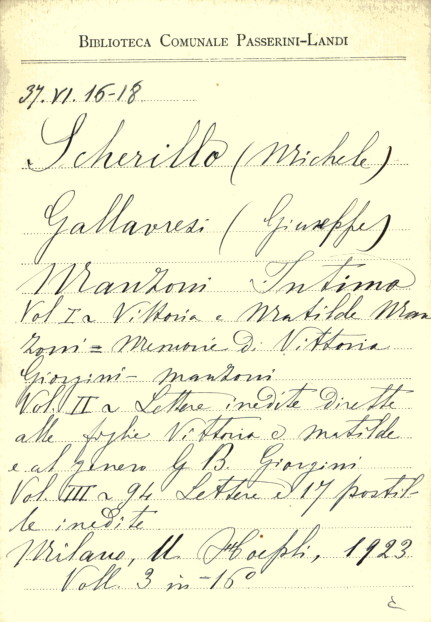 BIBLIOTECA COMUNALE PASSERINI-LANDI
37. VI. 16-18
Scherillo (Michele)
Gallavresi (Giuseppe)
Manzoni Intimo
Vol I a Vittoria e Matilde Man
zoni = Memorie di Vittoria
Giorgini - Manzoni
Vol. II a Lettere inedite dirette
alle figlie Vittoria e Matilde
e al genero G B. Giorgini
Vol. III a 94 Lettere e 17 postil-
le inedite
Milano, U. Hoepli, 1923
Voll. 3 in-16°